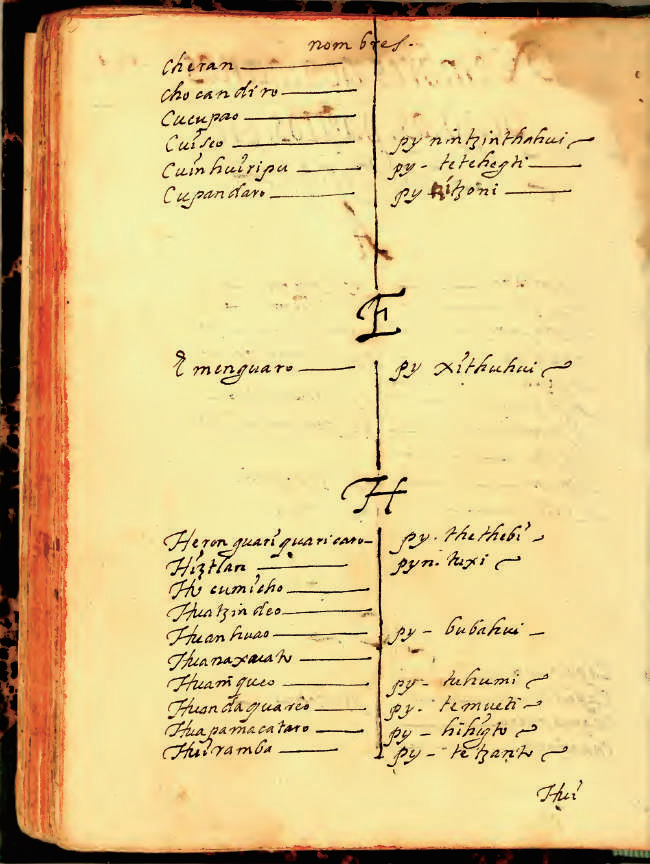 nombres.
Cheran
chocandiro
Cucupao
Cuiseo py nintzinthahui
Cuinhuiripu py - tetehegti
Cupandaro py nitzoni
E
Emenguaro py xithuhui
H
Heronguariquaricaro py. thethebi
Hiztlan pyn. tuxi
Hucumicho
Huatzindeo
Huanhuao py - bubahui
Huanaxuato
Huamqueo py - tuhumi
Huandaquareo py. temueti
Huapamacataro py - hihigto
Huiramba py - tetzanto
Hui